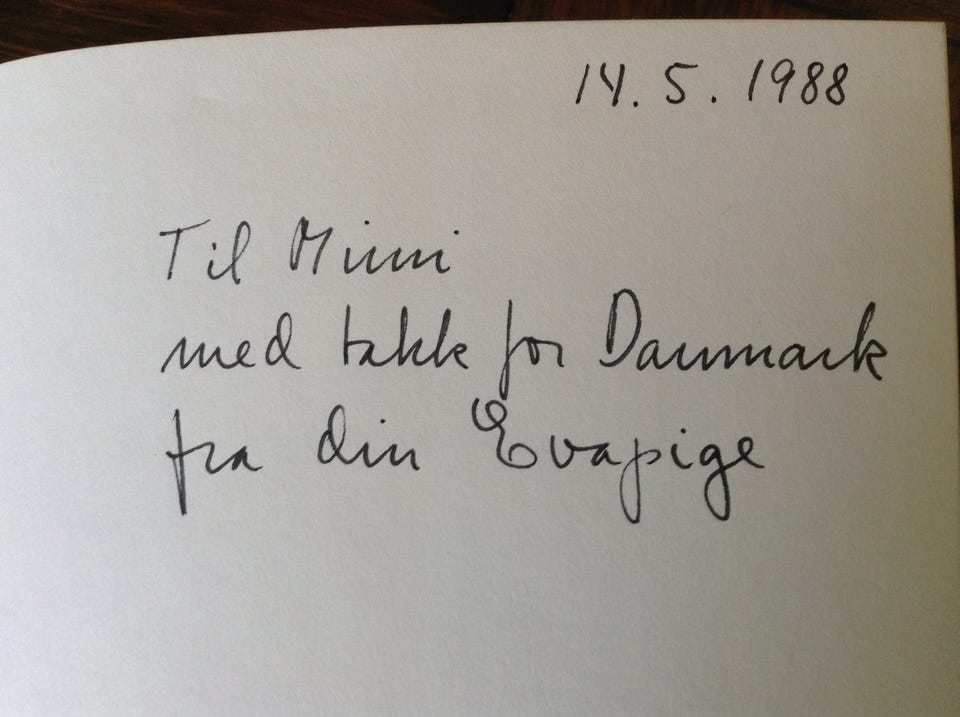 14.5.1988
Til Mimi
med takk for Danmark
fra din Evapige